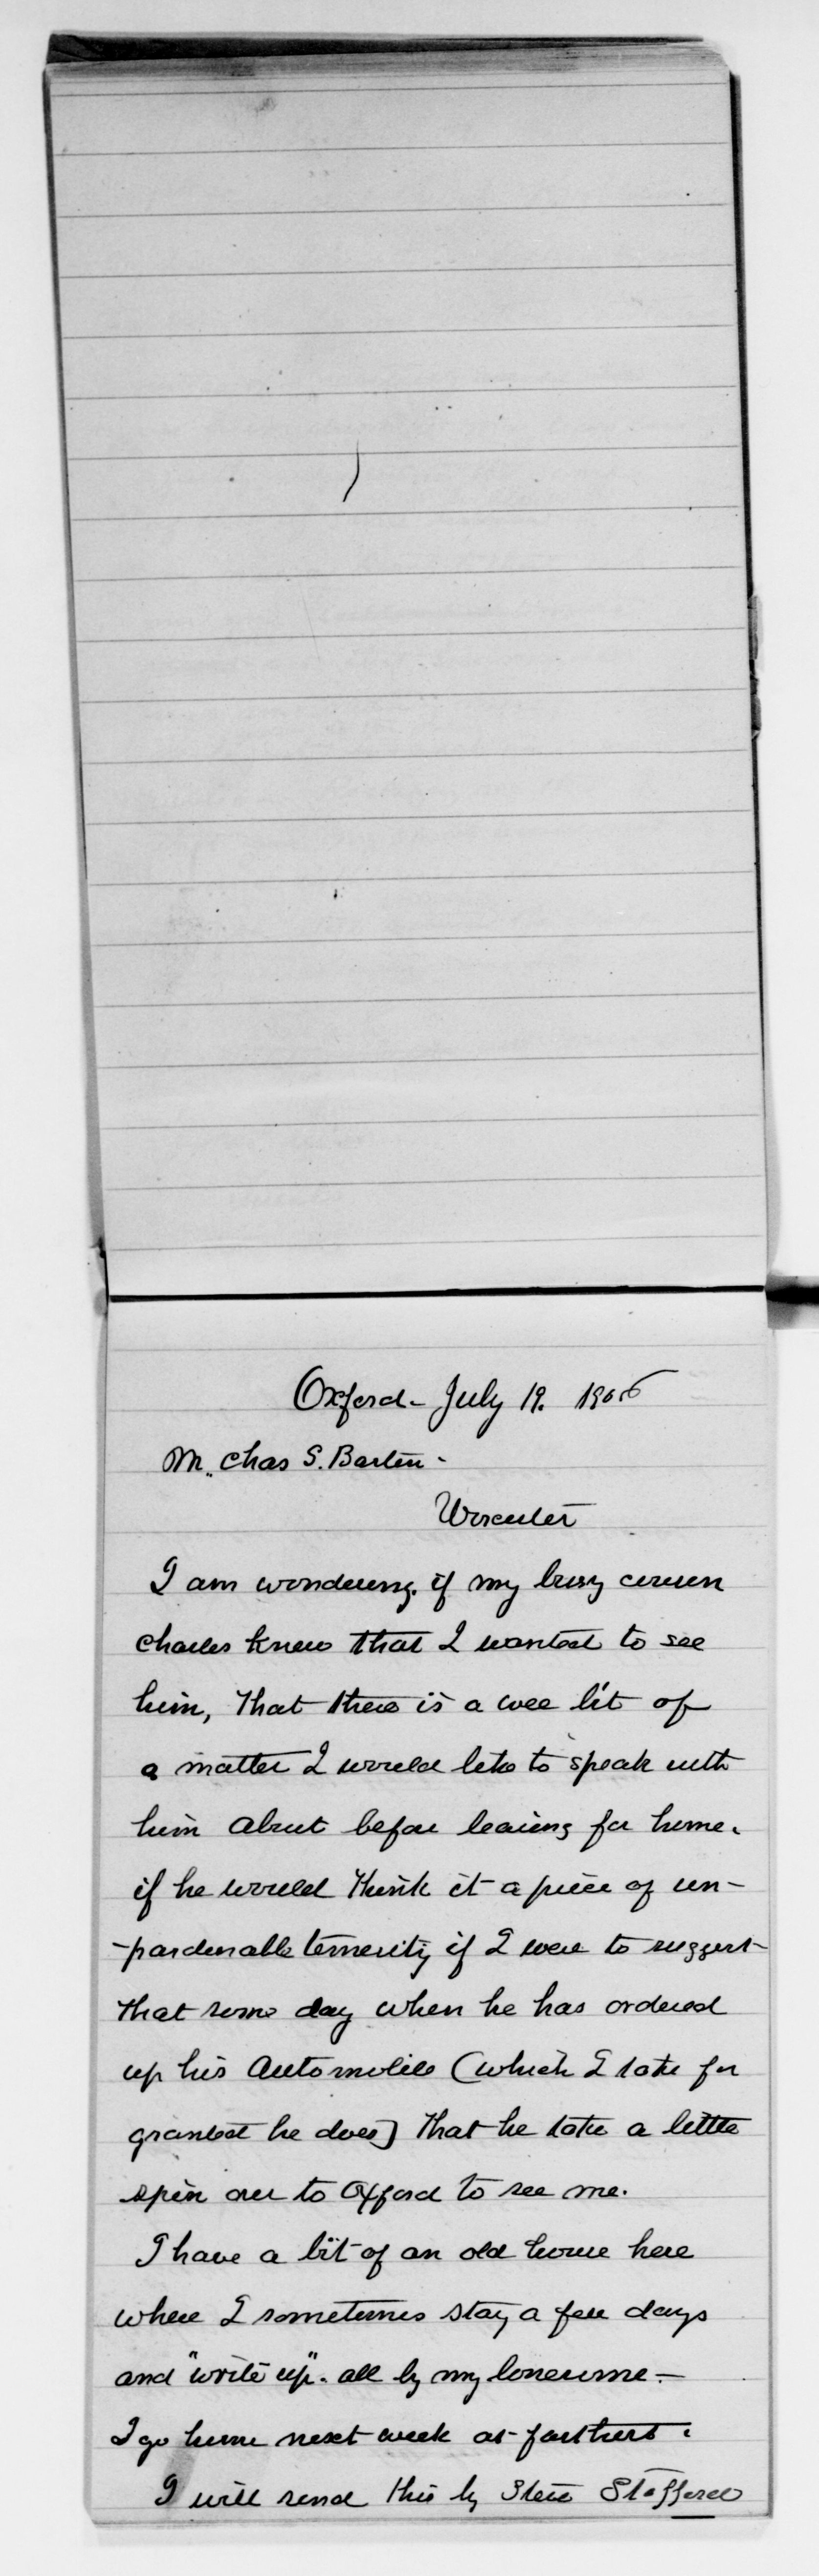 Oxford - July 19. 1906
Mr. Chas S. Barton -
Worcester
I am wondering if my busy cousin
Charles knew that I wanted to see
him, that there is a wee bit of
a matter I would like to speak with
him about before leaving for home.
if he would think it a piece of un-
-pardonable temerity if I were to suggest
that some day when he has ordered
up his Automobile (which I take for
granted he does) that he take a little
spin over to Oxford to see me.
I have a bit of an old house here
where I sometimes stay a few days
and "write up". all by my lonesome -
I go home next week at farthest.
I will send this by Stafford